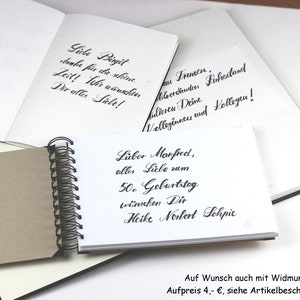 Liebe Birgit
danke für die schöne
Zeit! Wir wünschen
Dir alles Liebe!
Frauen,
Ruhestand
Deine
Kolleginnen und Kollegen!
Lieber Manfred,
alles Liebe zum
50. Geburtstag
wünschen Dir
Heike Norbert Sophie
Auf Wunsch auch mit Widmun
Aufpreis 4,- €, siehe Artikelbesch